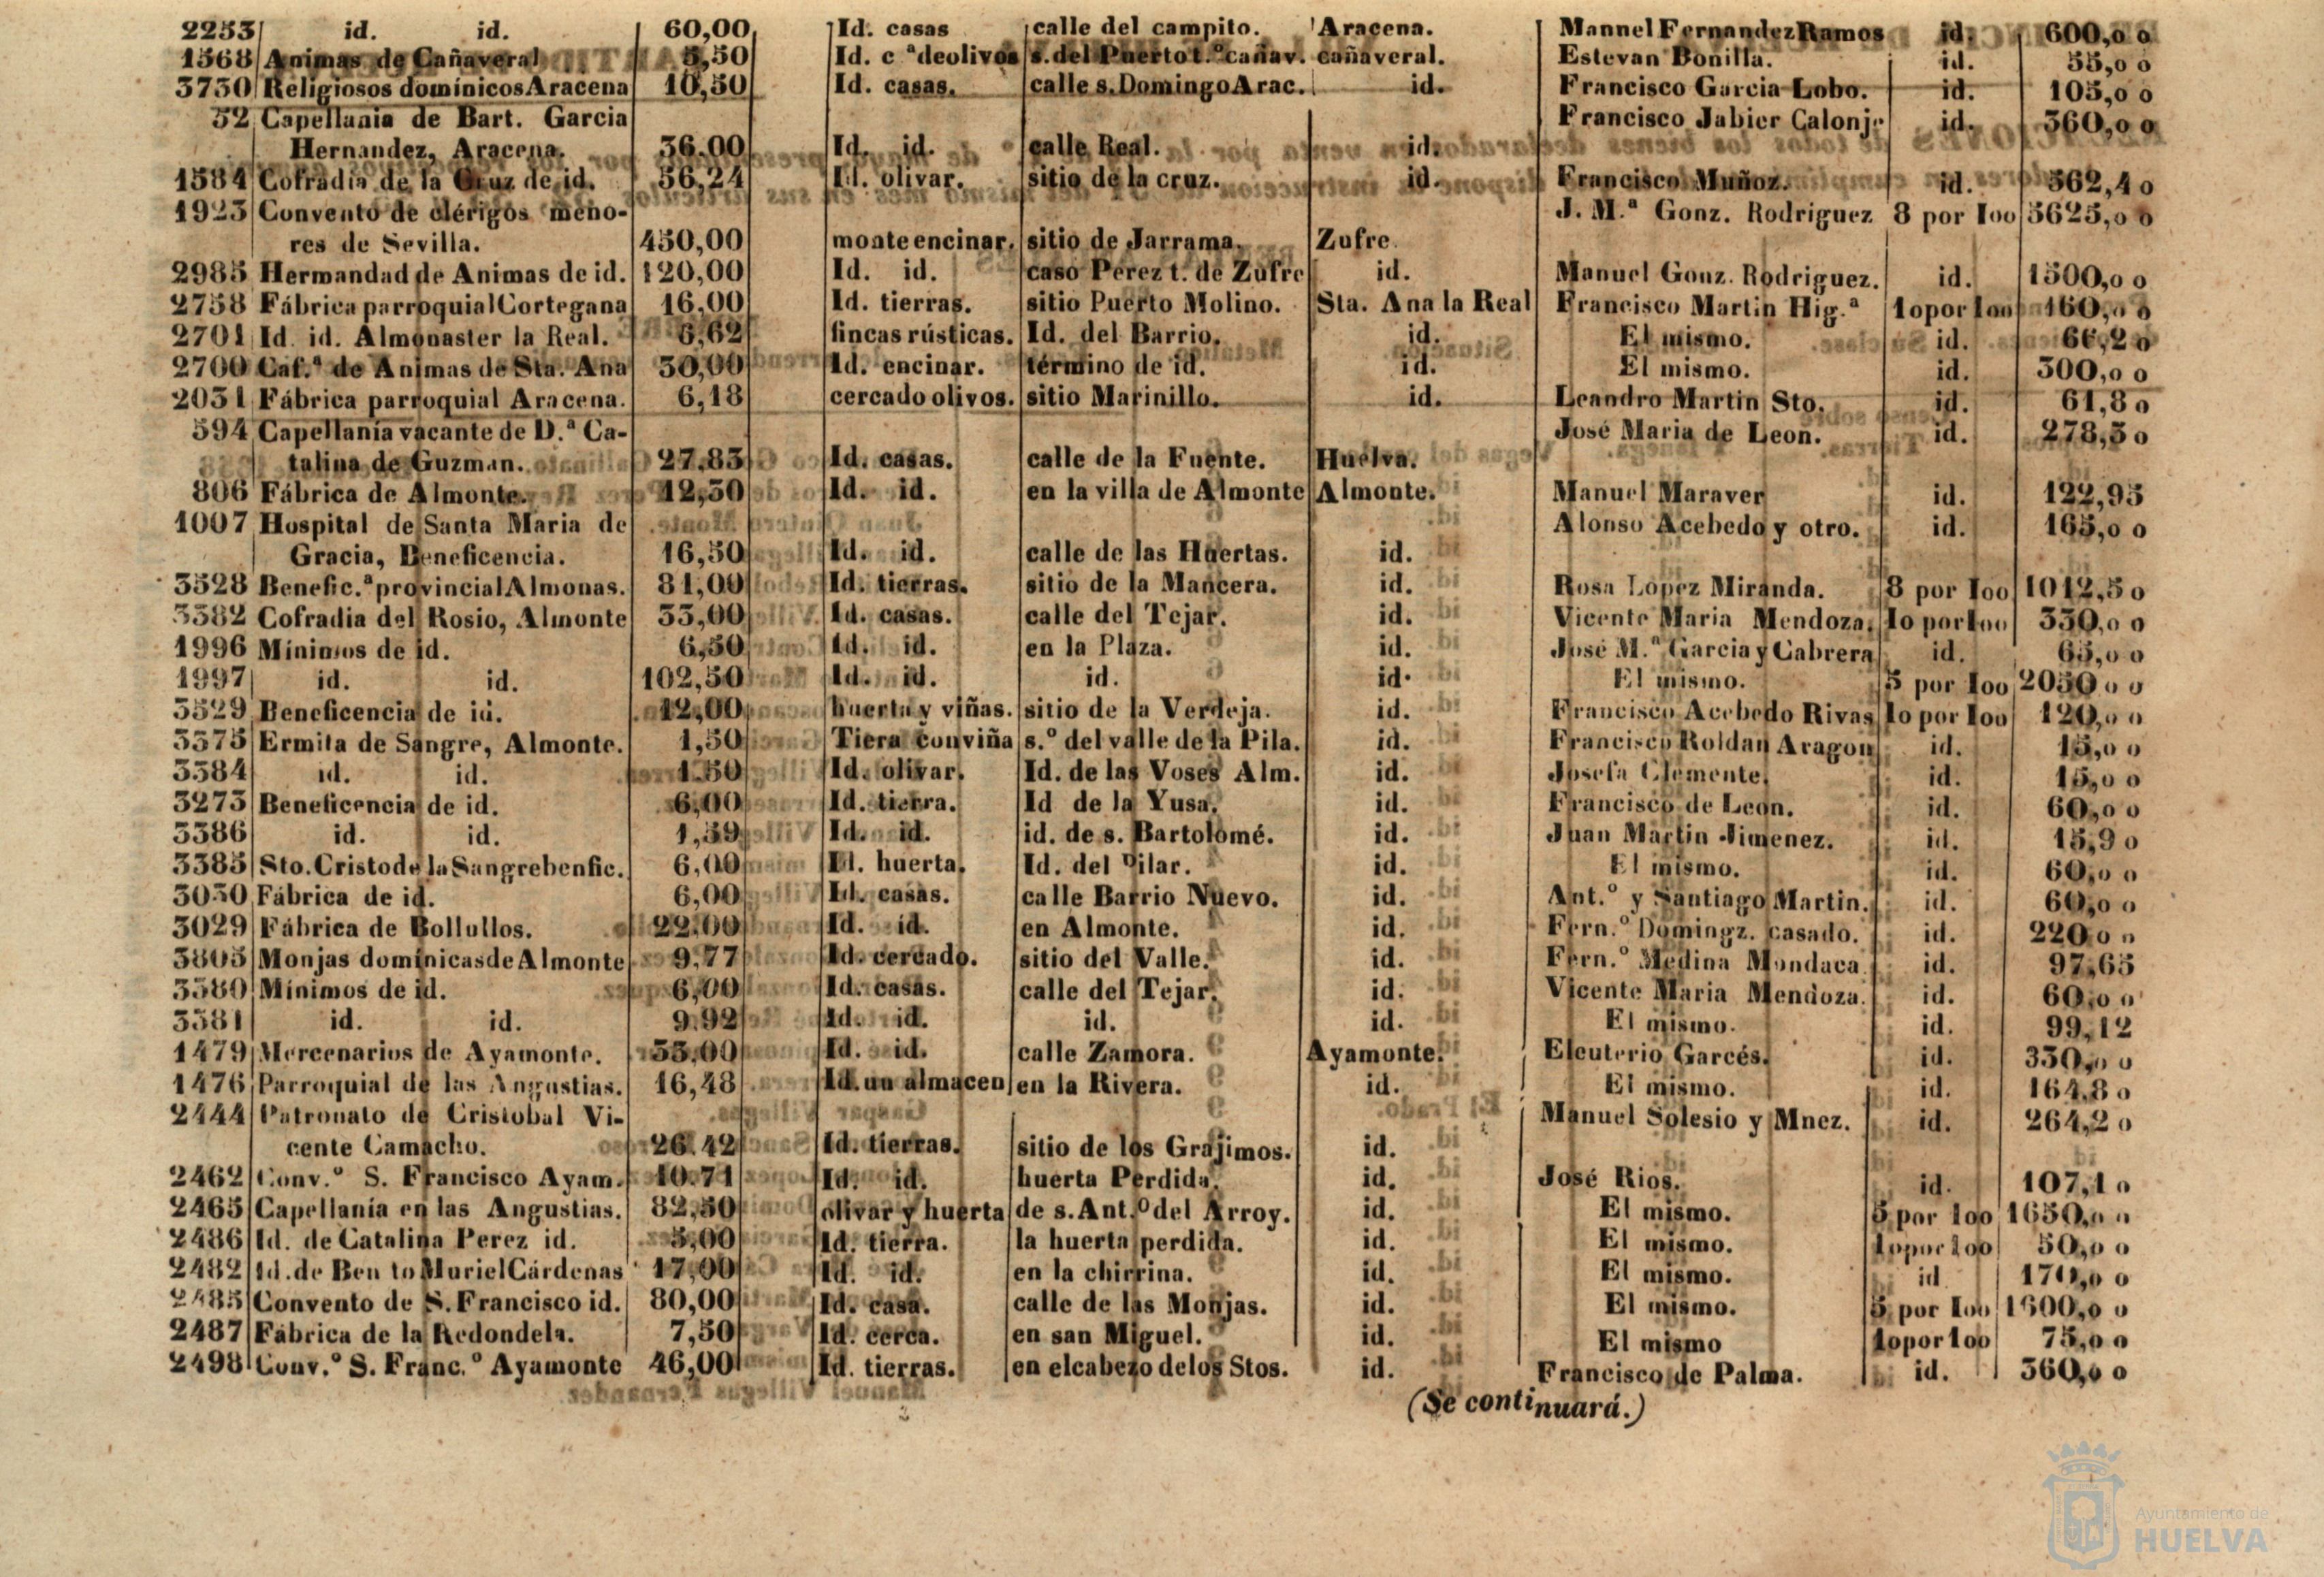 2253 id. id. 60,00 Id. casas calle del campito. Aracena. Mannel Fernandez Ramos id. 600,o o
1568 Animas de Cañaveral 5,50 Id. c ª de olivos s. del Puerto t.º cañav. cañaveral. Estevan Bonilla. id. 55,o o
3730 Religiosos domínicos Aracena 10,50 Id. casas. calle s. Domingo Arac. id. Francisco Garcia Lobo. id. 105,o o
52 Capellania de Bart. Garcia Francisco Jabier Calonje id. 360,o o
Hernandez, Aracena. 36.00 Id. id. calle Real. id.
1584 Cofradía de la Cruz de id. 56,24 Id. olivar. sitio de la cruz. id. Francisco Muñoz. id. 562,4o
1923 Convento de clérigos meno- J. M.ª Gonz. Rodriguez 8 por Ioo 5625,o o
res de Sevilla. 450,00 monte encinar. sitio de Jarrama. Zufre.
2985 Hermandad de Animas de id. 120,00 Id. id. caso Perez t. de Zufre id. Manuel Gonz. Rodriguez. id. 1500,o o
2758 Fábrica parroquial Cortegana 16,00 Id. tierras. sitio Puerto Molino. Sta. Ana la Real Francisco Martin Hig.ª 1o por Ioo 160,o o
2701 Id. id. Almonaster la Real. 6,62 fincas rústicas. Id. del Barrio. id. El mismo. id. 66,2o
2700 Cof.ª de Animas de Sta. Ana 30,00 Id. encinar. término de id. id. El mismo. id. 300,o o
2031 Fábrica parroquial Aracena. 6,18 cercado olivos. sitio Marinillo. id. Leandro Martin Sto. id. 61,8o
594 Capellanía vacante de D.ª Ca- José Maria de Leon. id. 278,3o
talina de Guzman. 27.83 Id. casas. calle de la Fuente. Huelva.
806 Fábrica de Almonte. 12,30 Id. id. en la villa de Almonte Almonte. Manuel Maraver id. 122,95
1007 Hospital de Santa Maria de Alonso Acebedo y otro. id. 165,o o
Gracia, Beneficencia. 16,50 Id. id. calle de las Huertas. id.
3528 Benefic.ª provincial Almonas. 81,00 Id. tierras. sitio de la Mancera. id. Rosa Lopez Miranda. 8 por Ioo 1012,5o
3382 Cofradia del Rosio, Almonte 33,00 Id. casas. calle del Tejar. id. Vicente Maria Mendoza. 1o por 1oo 330,o o
1996 Mínimos de id. 6,50 Id. id. en la Plaza. id. José M.ª Garcia y Cabrera id. 65,o o
1997 id. id. 102,50 Id. id. id. id. El mismo. 5 por Ioo 2050 o o
3529 Beneficencia de id. 12,00 huerta y viñas. sitio de la Verdeja. id. Francisco Acebedo Rivas 1o por Ioo 120,o o
3375 Ermita de Sangre, Almonte. 1,50 Tiera con viña s.º del valle de la Pila. id. Francisco Roldan Aragon id. 15,o o
3384 id. id. 1.50 Id. olivar. Id. de las Voses Alm. id. Josefa Clemente. id. 15,o o
3273 Beneficencia de id. 6,00 Id. tierra. Id de la Yusa. id. Francisco de Leon. id. 60,o o
3386 id. id. 1,59 Id. id. id. de s. Bartolomé. id. Juan Martin Jimenez. id. 15,9o
3385 Sto. Cristo de la Sangre benfic. 6,00 Id. huerta. Id. del Pilar. id. El mismo. id. 60,o o
3030 Fábrica de id. 6,00 Id. casas. calle Barrio Nuevo. id. Ant.º y Santiago Martin. id. 60,o o
3029 Fábrica de Bollullos. 22.00 Id. id. en Almonte. id. Fern.º Domingz. casado. id. 220 o o
3803 Monjas domínicas de Almonte 9,77 Id. cercado. sitio del Valle. id. Fern.º Medina Mondaca id. 97,65
3380 Mínimos de id. 6,00 Id. casas. calle del Tejar. id. Vicente Maria Mendoza. id. 60,o o
3381 id. id. 9.92 Id. id. id. id. El mismo. id. 99,12
1479 Mercenarios de Ayamonte. 33,00 Id. id. calle Zamora. Ayamonte. Eleuterio Garcés. id. 330,o o
1476 Parroquial de las Angustias. 16,48 Id. un almacen en la Rivera. id. El mismo. id. 164,8o
2444 Patronato de Cristobal Vi- Manuel Solesio y Mnez. id. 264,2o
cente Camacho. 26.42 Id. tierras. sitio de los Grajimos. id.
2462 Conv.º S. Francisco Ayam. 10.71 Id. id. huerta Perdida. id. José Rios. id. 107,1o
2465 Capellanía en las Angustias. 82,50 olivar y huerta de s. Ant.º del Arroy. id. El mismo. 5 por 1oo 1650,o o
2486 Id. de Catalina Perez id. 5,00 Id. tierra. la huerta perdida. id. El mismo. 1o por 1oo 50,o o
2482 Id. de Ben to Muriel Cárdenas 17,00 Id. id. en la chirrina. id. El mismo. id 170,o o
2485 Convento de S. Francisco id. 80,00 Id. casa. calle de las Monjas. id. El mismo. 5 por Ioo 1600,o o
2487 Fábrica de la Redondela. 7,50 Id. cerca. en san Miguel. id. El mismo 1o por 1oo 75,o o
2498 Conv.º S. Franc.º Ayamonte 46,00 Id. tierras. en el cabezo de los Stos. id. Francisco de Palma. id. 360,o o
(Se continuará.)
Ayuntamiento de
HUELVA